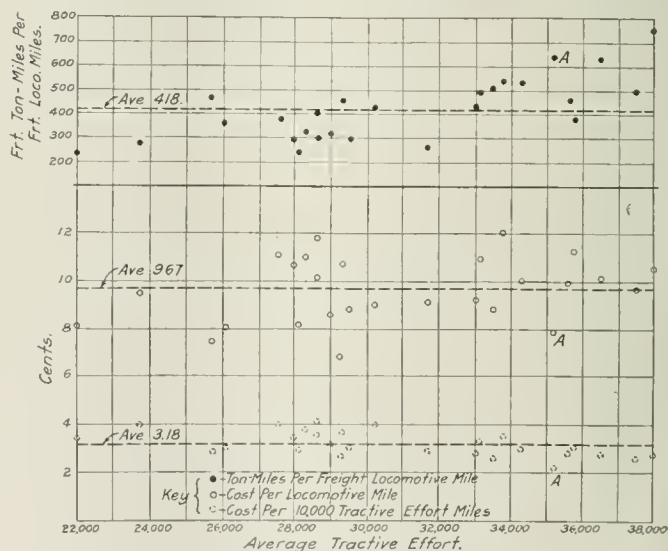 Frt. Ton-Miles Per
Frt. Loco. Miles.
800
700
600
500
400
300
200
Ave 418.
A
Cents.
12
10
8
6
4
2
Ave 967
A
Ave 3.18
A
Key
-Ton-Miles Per Freight Locomotive Mile
-Cost Per Locomotive Mile
-Cost Per 10,000 Tractive Effort Miles
22,000 24,000 26,000 28,000 30,000 32,000 34,000 36,000 38,000
Average Tractive Effort.